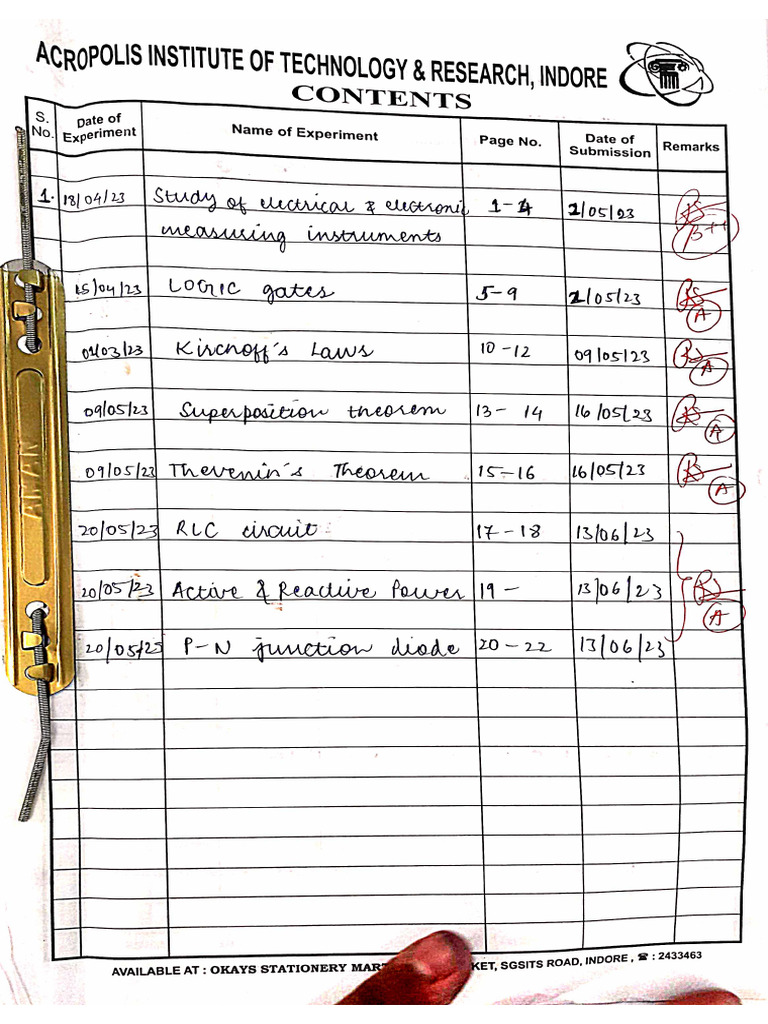 ACROPOLIS INSTITUTE OF TECHNOLOGY & RESEARCH, INDORE
CONTENTS
S. No. Date of Experiment Name of Experiment Page No. Date of Submission Remarks
1. 18/04/23 Study of electrical & electronic 1-4 2/05/23
measuring instruments B++
25/04/23 LOGIC gates 5-9 2/05/23 A
02/03/23 Kirchoff's Laws 10-12 09/05/23 A
09/05/23 Superposition theorem 13-14 16/05/23 A
09/05/23 Thevenin's Theorem 15-16 16/05/23 A
20/05/23 RLC circuit 17-18 13/06/23
20/05/23 Active & Reactive Power 19- 13/06/23 A
20/05/23 P-N junction diode 20-22 13/06/23
AMAN
AVAILABLE AT : OKAYS STATIONERY MART SGSITS ROAD, INDORE, ☎ : 2433463